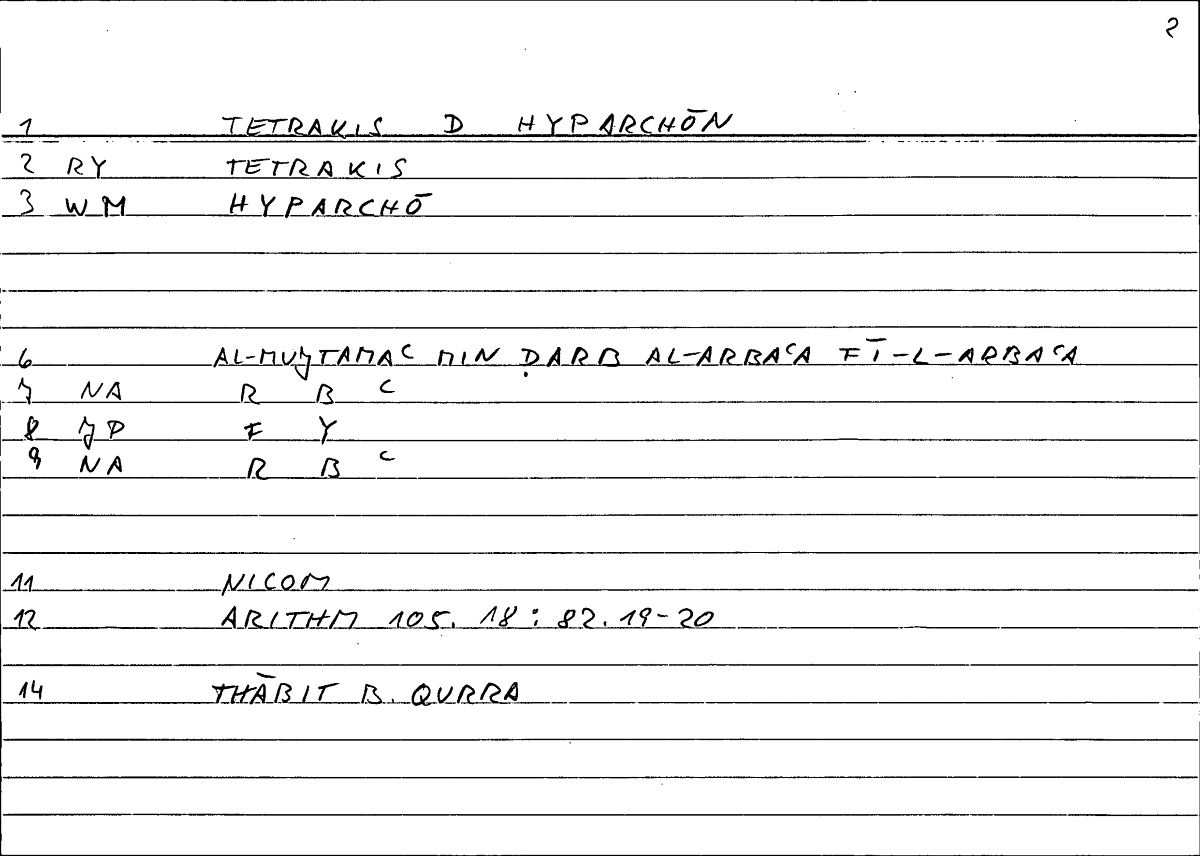 2
1 TETRAKIS D HYPARCHŌN
2 RY TETRAKIS
3 WM HYPARCHŌ
6 AL-MUJTAMAʿ MIN ḌARB AL-ARBAʿA FĪ-L-ARBAʿA
7 NA R B ʿ
8 JP F Y
9 NA R B ʿ
11 NICOM
12 ARITHM 105. 18 : 82. 19-20
14 THĀBIT B. QURRA